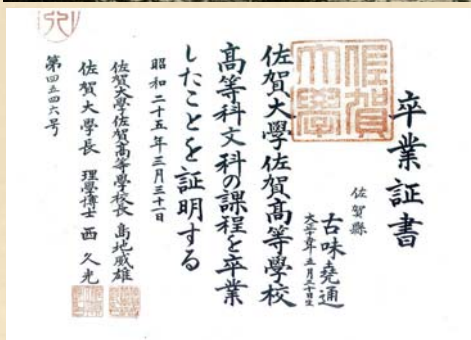 卒業証書
佐賀縣
古味堯通
佐賀大學佐賀高等學校
高等科文科の課程を卒業
したことを証明する
昭和二十五年三月三十一日
佐賀大學佐賀高等學校長 島地威雄
佐賀大學長 理學博士 西久光
第四五四六号
佐賀大學